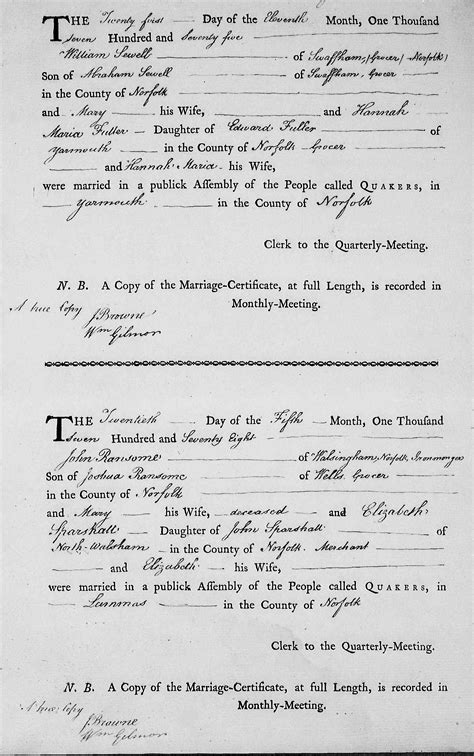 THE Twenty first Day of the Eleventh Month, One Thousand
Seven Hundred and Seventy five
William Sewell of Swaffham, (Grocer) Norfolk)
Son of Abraham Sewell of Swaffham, Grocer
in the County of Norfolk
and Mary his Wife, and Hannah
Maria Fuller Daughter of Edward Fuller of
Yarmouth in the County of Norfolk Grocer
and Hannah Maria his Wife,
were married in a publick Assembly of the People called QUAKERS, in
Yarmouth in the County of Norfolk
Clerk to the Quarterly-Meeting.
N. B. A Copy of the Marriage-Certificate, at full Length, is recorded in
Monthly-Meeting.
A true Copy J Browne
Wm Gilmor
THE Twentieth Day of the Fifth Month, One Thousand
Seven Hundred and Seventy Eight
John Ransome of Walsingham, Norfolk, Ironmonger
Son of Joshua Ransome of Wells Grocer
in the County of Norfolk
and Mary his Wife, deceased and Elizabeth
Sparshall Daughter of John Sparshall of
North-Walsham in the County of Norfolk Merchant
and Elizabeth his Wife,
were married in a publick Assembly of the People called QUAKERS, in
Lammas in the County of Norfolk
Clerk to the Quarterly-Meeting.
N. B. A Copy of the Marriage-Certificate, at full Length, is recorded in
Monthly-Meeting.
A true Copy
J Browne
Wm Gilmor